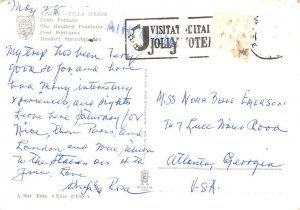 May 28
TIVOLI - VILLA D'ESTE
Cento Fontane
The Hundred Fountains
Cent Fontaines
Hundert Springbrunnen
VISITATE
JOLLY HOTELS
My trip has been very
good so far, and have
had many interesting
experiences, and sights
Leave here Saturday for
Nice, then Paris, and
London, and will return
to the States on 14th
June. Love
Rosa
Miss Nora Belle Emerson
Road
Atlanta, Georgia
U.S.A.